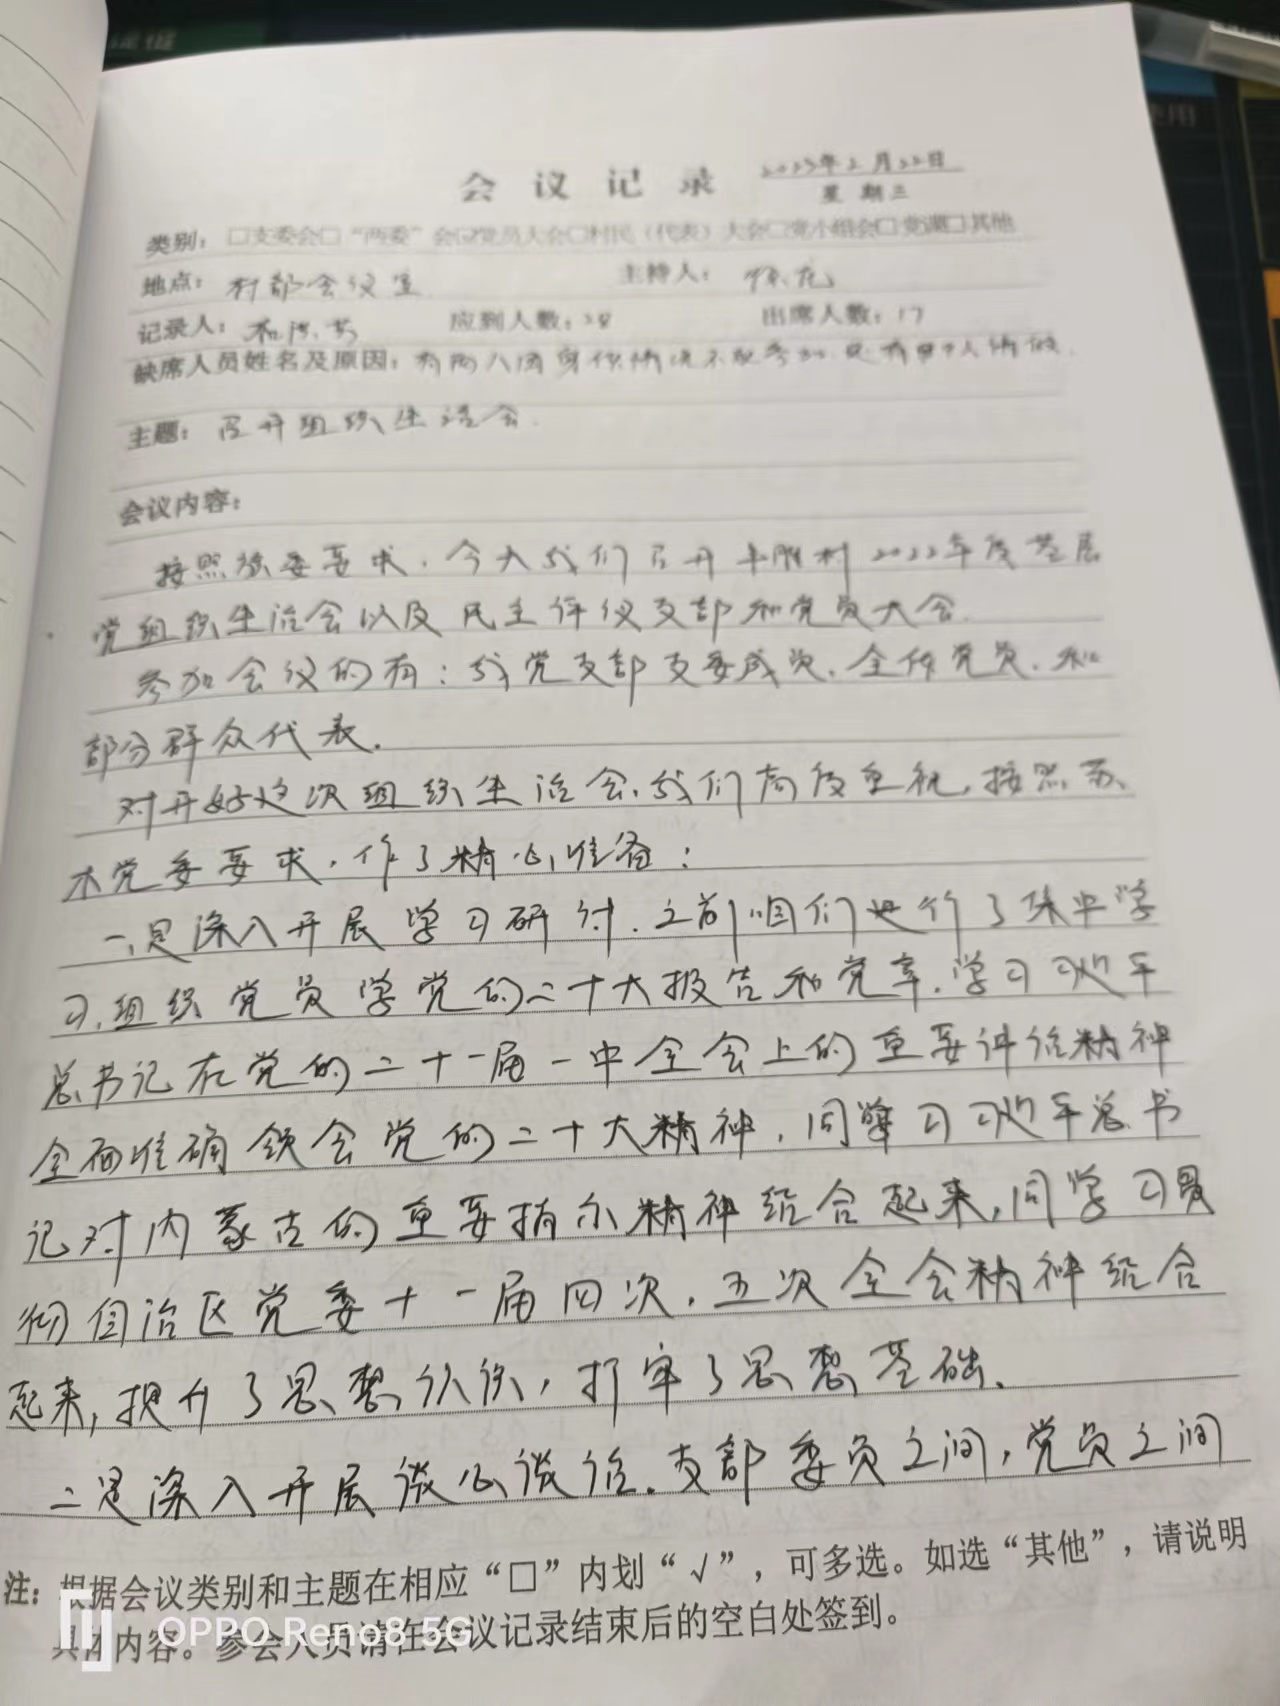 会议记录
2023年2月22日
星期三
类别：□支委会□“两委”会☑党员大会□村民（代表）大会□党小组会□党课□其他
地点：村部会议室
主持人：
记录人：
应到人数：28
出席人数：17
缺席人员姓名及原因：有两人因身体情况不能参加，还有
主题：召开组织生活会.
会议内容：
按照党委要求，今天我们召开丰胜村2022年度基层
党组织生活会以及民主评议支部和党员大会.
参加会议的有：我党支部支委成员、全体党员、和
部分群众代表.
对开好这次组织生活会，我们高度重视，按照苏
木党委要求，作了精心准备：
一、是深入开展学习研讨.之前咱们进行了集中学
习，组织党员学党的二十大报告和党章，学习习近平
总书记在党的二十一届一中全会上的重要讲话精神
全面准确领会党的二十大精神，同学习习近平总书
记对内蒙古的重要指示精神结合起来，同学习贯
彻自治区党委十一届四次，五次全会精神结合
起来，提升了思想认识，打牢了思想基础、
二是深入开展谈心谈话.支部委员之间，党员之间
注：根据会议类别和主题在相应“□”内划“√”，可多选。如选“其他”，请说明
具体内容。参会人员请在会议记录结束后的空白处签到。
OPPO Reno8 5G